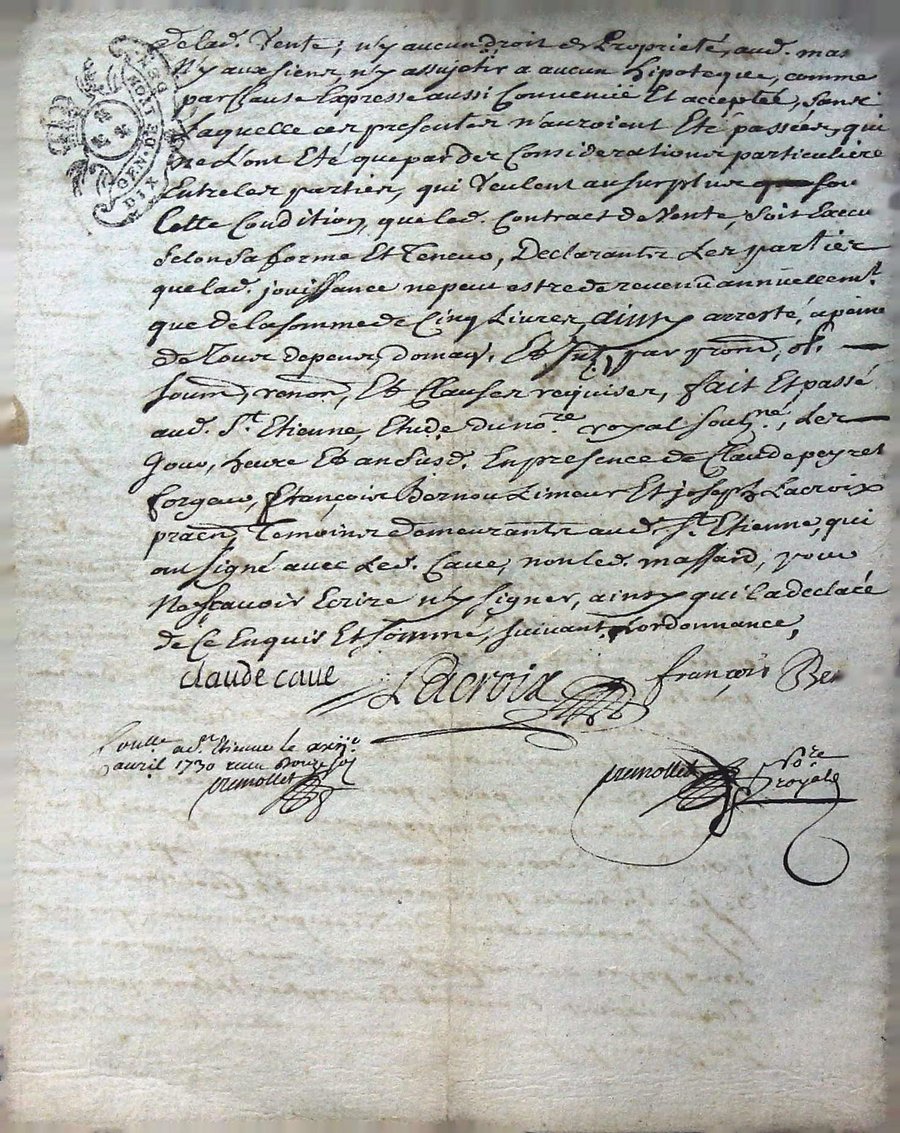 GEN. DE MON
DIX DEN
de lad. Vente, n'y aucun droit de Proprieté, aud. mas
N'y aux siens, n'y assujetir a aucun hipoteque, comme
par Clause Expresse aussi Convenüe Et acceptée, sans
Laquelle ces presentes n'auroient Eté passées, qui
ne L'ont Eté que par des Considerations particuliere
Entre les parties, qui Veulent au surplus que sou
Cette Condition, que led. Contract de Vente, soit Execu
selon sa forme Et Teneur, Declarantes Les parties
que lad. jouissance ne peut estre de revenu annuellemt.
que de la somme de Cinq Livres, ainsy arresté, a peine
de Tous depens, domag. Et Int. par prom, ob.
soum, renon, Et Clauses requises, fait Et passé
aud. St. Etienne, Etude du nore. royal sousne., Les
Jour, heure Et an susd. En presence de Claude peyret
forgeur, françois Bernou Limeur Et joseph Lacroix
praen, Temoins demeurants aud. St. Etienne, qui
ont signé avec Led. Cave, non led. massard, pour
Ne sçavoir Ecrire n'y signer, ainsy qu'il a declaré
de Ce Enquis Et sommé, suivant L'ordonnance,
claude cave Lacroix françois Ber
Coulle a St. Etienne le xxije
avril 1730 receu Douze sols
premollet
premollet Nore royal